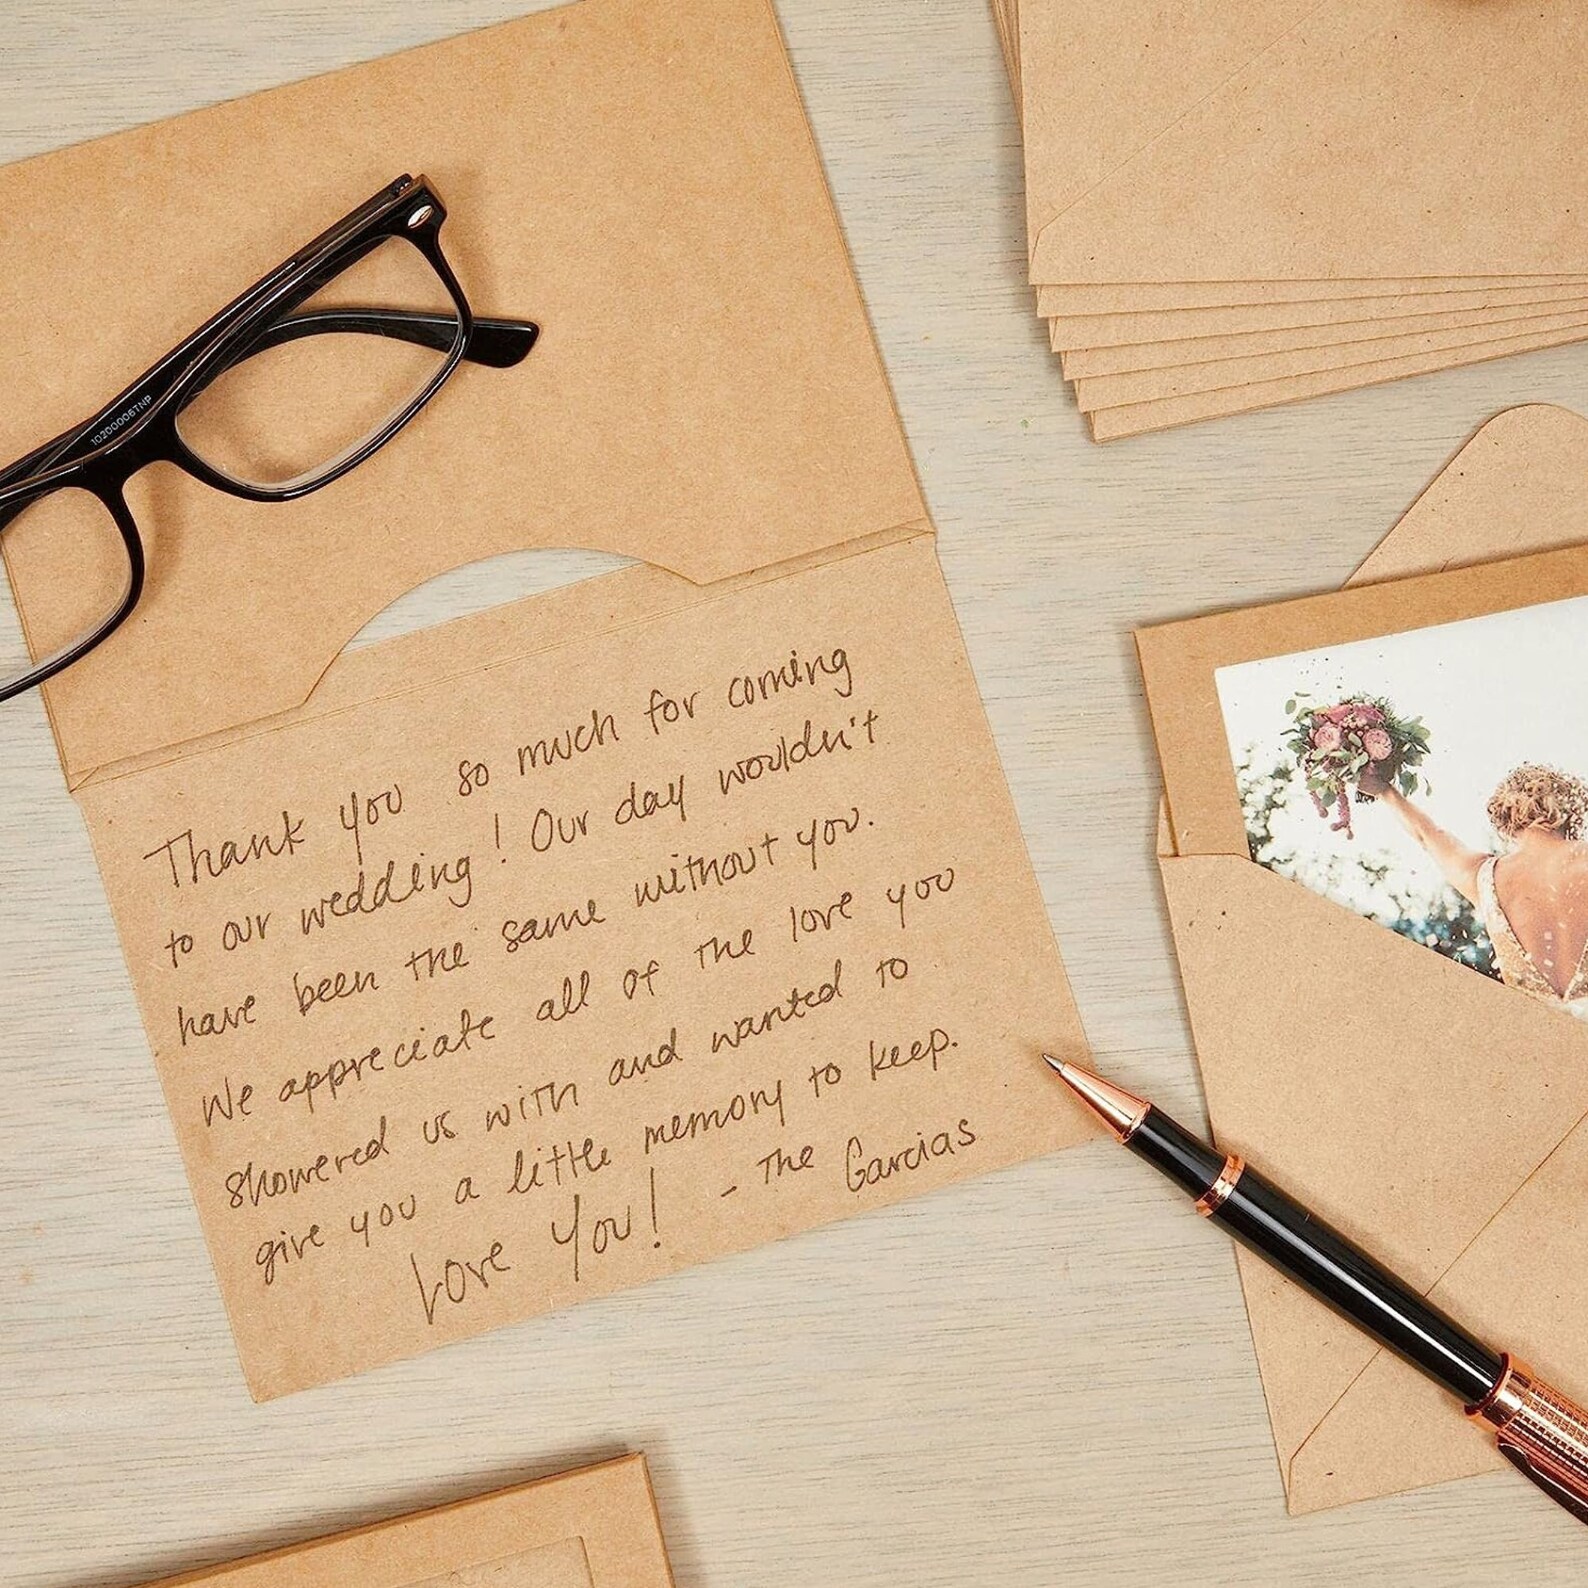 10200006TNP
Thank you so much for coming
to our wedding! Our day wouldn't
have been the same without you.
We appreciate all of the love you
showered us with and wanted to
give you a little memory to keep.
Love You! - The Garcias